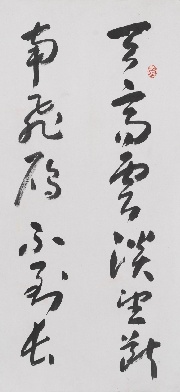 天高雲淡望斷
南飛雁不到長